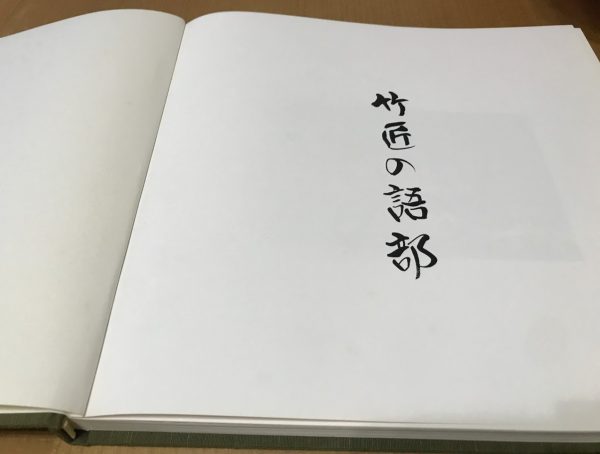 竹匠の語部